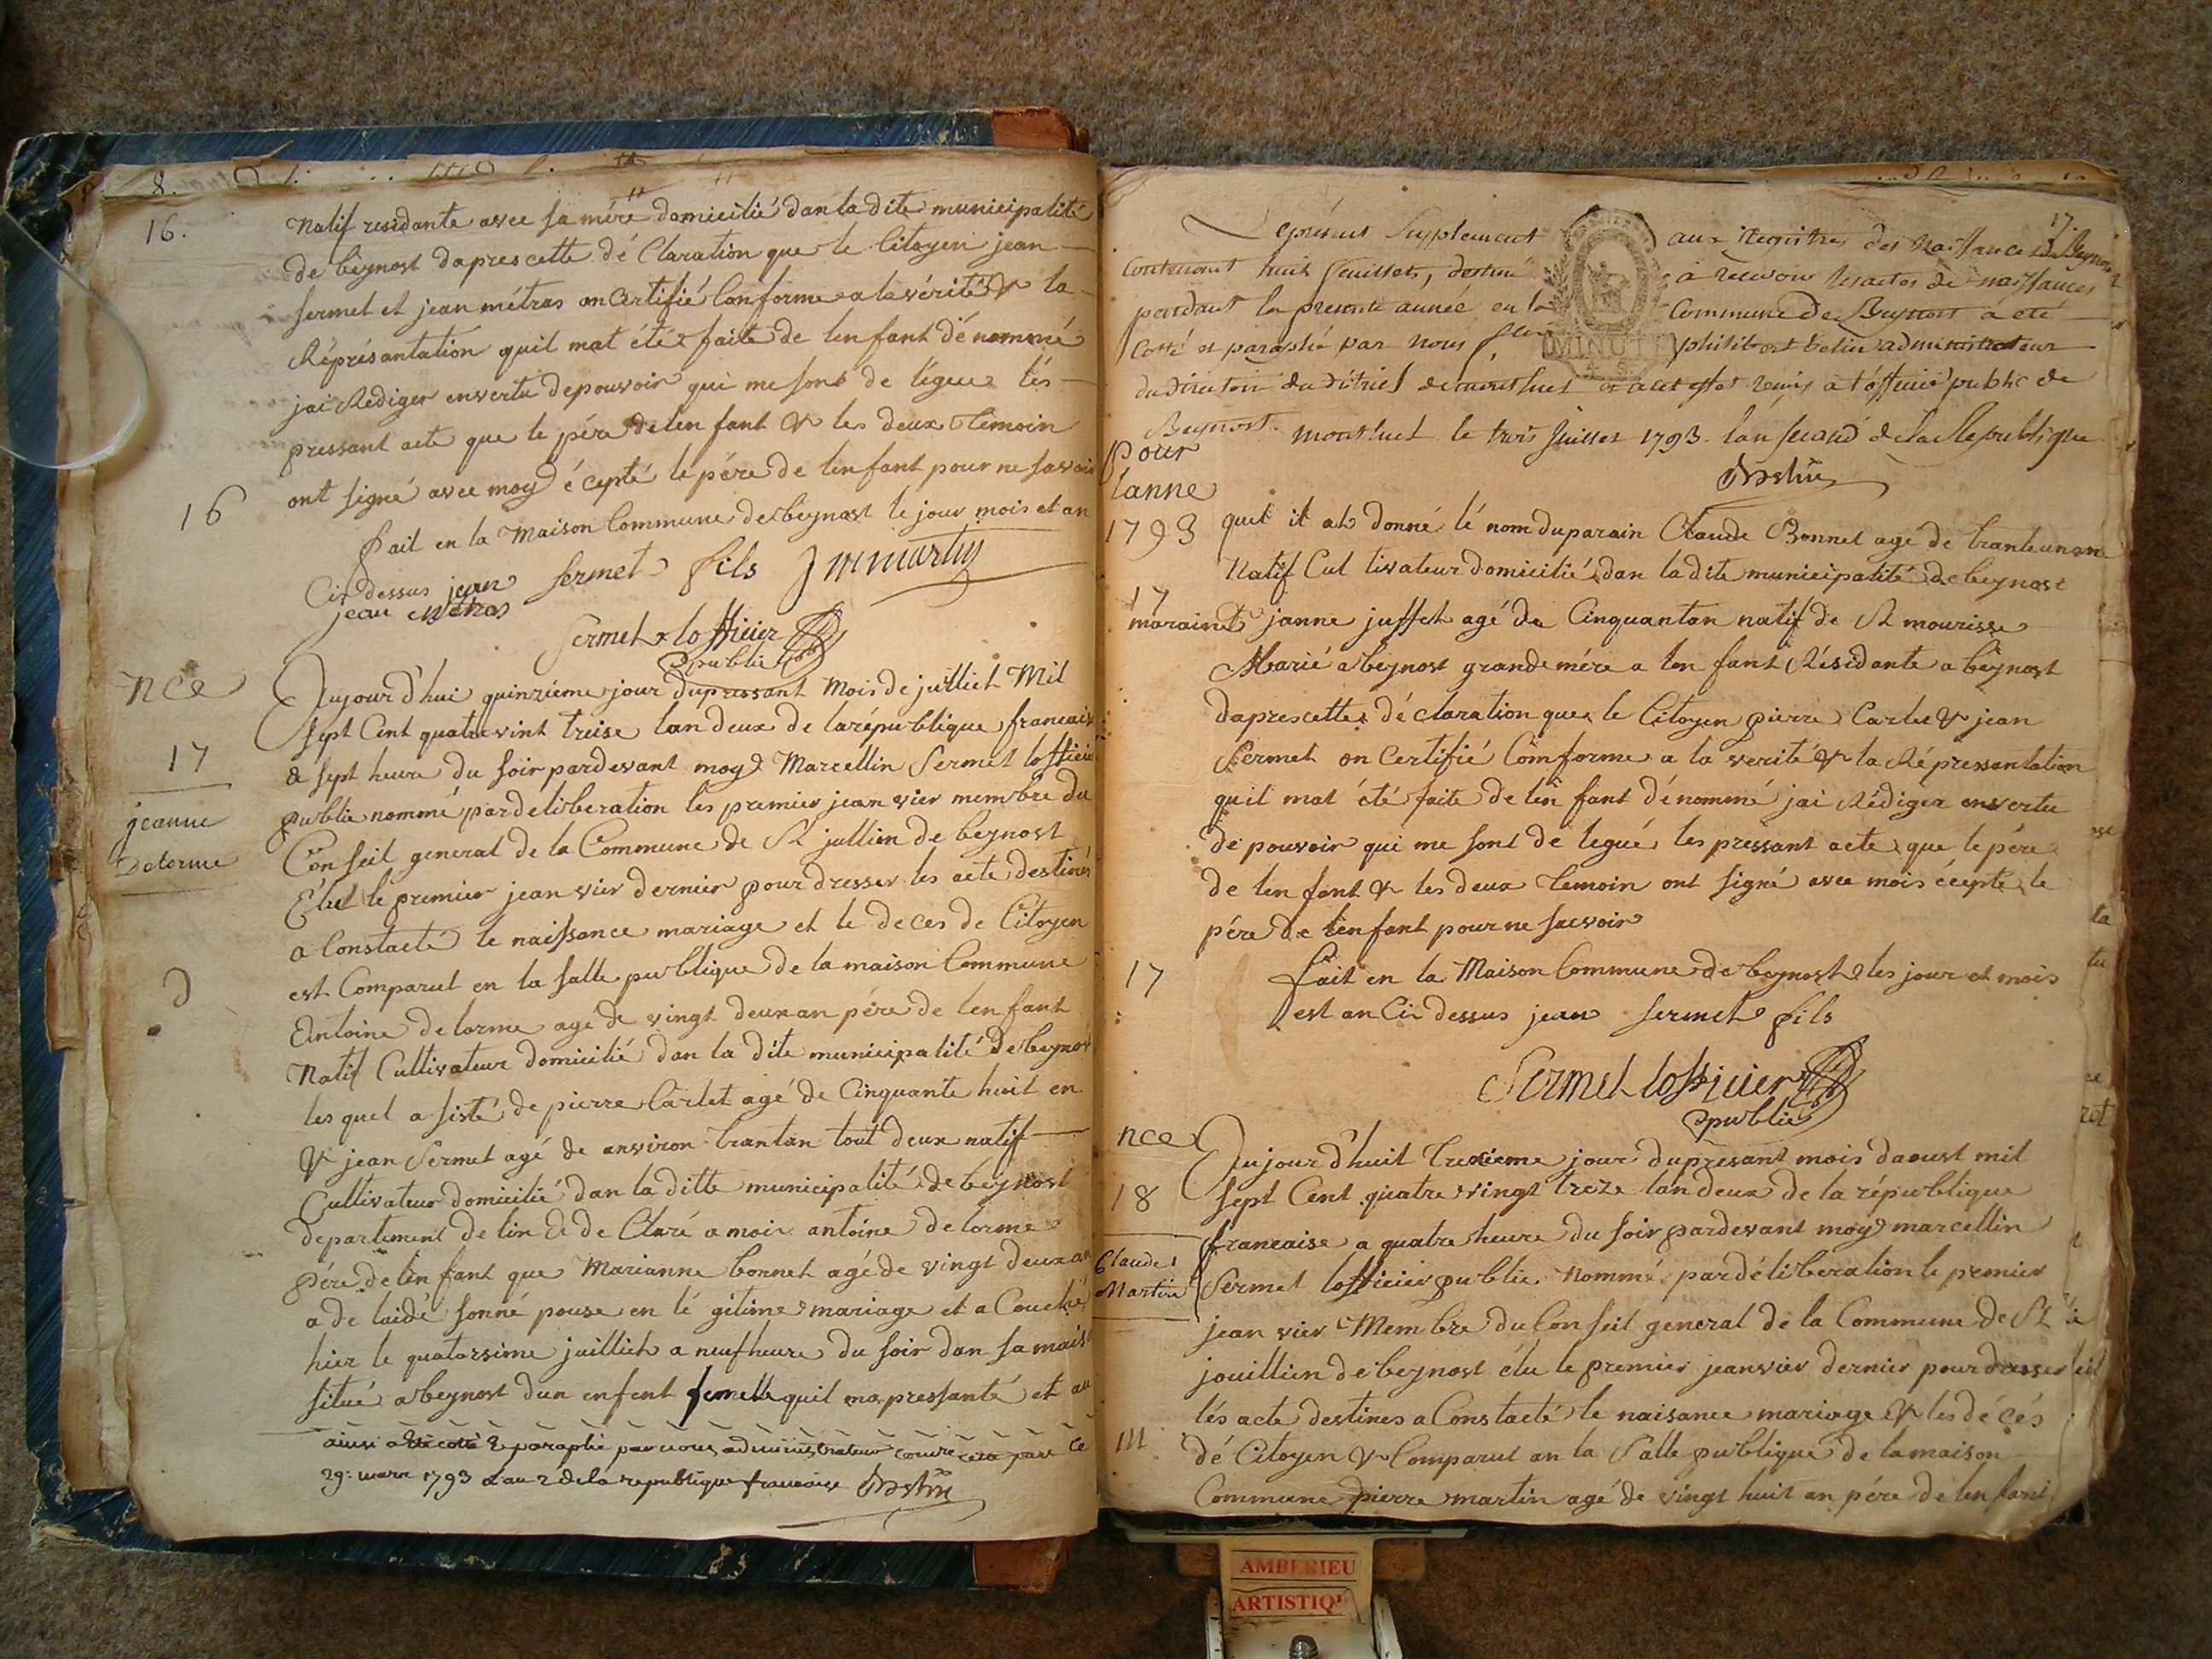 8.
16.
Natif residante avec sa mére domicilié dan la dite municipalité
de beÿnost dapres cette dé Claration que le Citoyen jean
sermet et jean métras on Certifié Conforme a la vérité & la
Réprésantation quil mat été faite de lenfant dé nommé
jai Rédiger en vertu de pouvoir qui me sont de légue lés
pressant acte que le pére de len fant & les deux temoin
ont signé avec moy é cepté le pére de lenfant pour ne savoir
16
fait en la Maison Commune de beynost le jour mois et an
Cir dessus jean sermet fils J m martin
jean métras
Sermet lofficier
public
nce
17
jeanne
Delorme
Aujourd'hui quinziéme jour du pressant Mois de juilliet Mil
sept Cent quatrevint treise lan deux de la république francais
a sept heure du soir pardevant moy Marcellin Sermet lofficier
public nommé par deliberation les premier jean vier membre du
Conseil general de la Commune de St jullien de beynost
Élut le premier jean vier dernier pour dresser les acte destinés
a Constacté le naissance mariage et le deces de Citoyen
est Comparut en la salle publique de la maison Commune
Antoine de lorme age de vingt deux an pére de len fant
Natif Cultivateur domicilié dan la dite municipalité de beynost
les quel a sisté de pierre Carlet agé de Cinquante huit en
& jean Sermet agé de environ trantan tout deux natif
Cultivateur domicilié dan la ditte municipalité de beynost
departement de lin a de Claré a moir antoine de lorme
pére de len fant que Marianne bonnet agé de vingt deux an
a de laidé sonné pouse en lé gitime mariage et a Couché
hier le quatorsime juilliet a neuf heure du soir dan sa maison
situé a beynost dun enfent femelle quil ma pressanté et au
ainsi a été cotté & paraphé par nous administrateur ce
29: mars 1793 lan 2 de la republique francoise
17
Le présent Supplement aux Registres des Naissances de Beynost
contenant huit feuillets, destiné à recevoir les actes de naissances
pendant la presente année en la Commune de Beynost a été
Cotté et paraphé par nous philibert belin administrateur
MINUTE
du directoire du district de montluel et a cet effet remis à l'officié public de
Beynost. montluel le trois Juillet 1793. l'an second de la Republique
pour
lanne
1793
17
quel it ab donné lé nom du parain Claude Bonnet age de trante un an
Natif Cul tivateur domicilié dan la dite municipalité de beynost
maraine janne juffet agé de Cinquantan natif de St mourisse
Marié a beynost grande mére a len fant Résidante a beynost
dapres cette dé claration que le Citoyen pierre Carlet & jean
Sermet on Certifié Comforme a la verité & la Répressentation
quil mat été faite de len fant dé nommé jai Rédiger en vertu
de pouvoir qui me sont de legué les pressant acte que le pére
de len fant & les deux temoin ont signé avec mois écepté le
pére de lenfant pour ne sacvoir
17
fait en la Maison Commune de beynost les jour et mois
est an Cir dessus jean sermet fils
Sermet lofficier
public
nce
18
Claude
Martin
Aujourd'huit treizieme jour du présant mois daoust mil
sept Cent quatre vingt treze lan deux de la république
francaise a quatre heure du soir pardevant moy marcellin
Sermet lofficier public Nommé par déliberation le premier
jean vier Membre du Conseil general de la Commune de St
jouillien de beynost élu le premier jeanvier dernier pour dresser
lés acte destines a Constacté le naisance mariage & les décés
dé Citoyen & Comparut an la Salle publique de la maison
Commune pierre martin agé de vingt huit an pére de len fant
AMBERIEU
ARTISTIQ